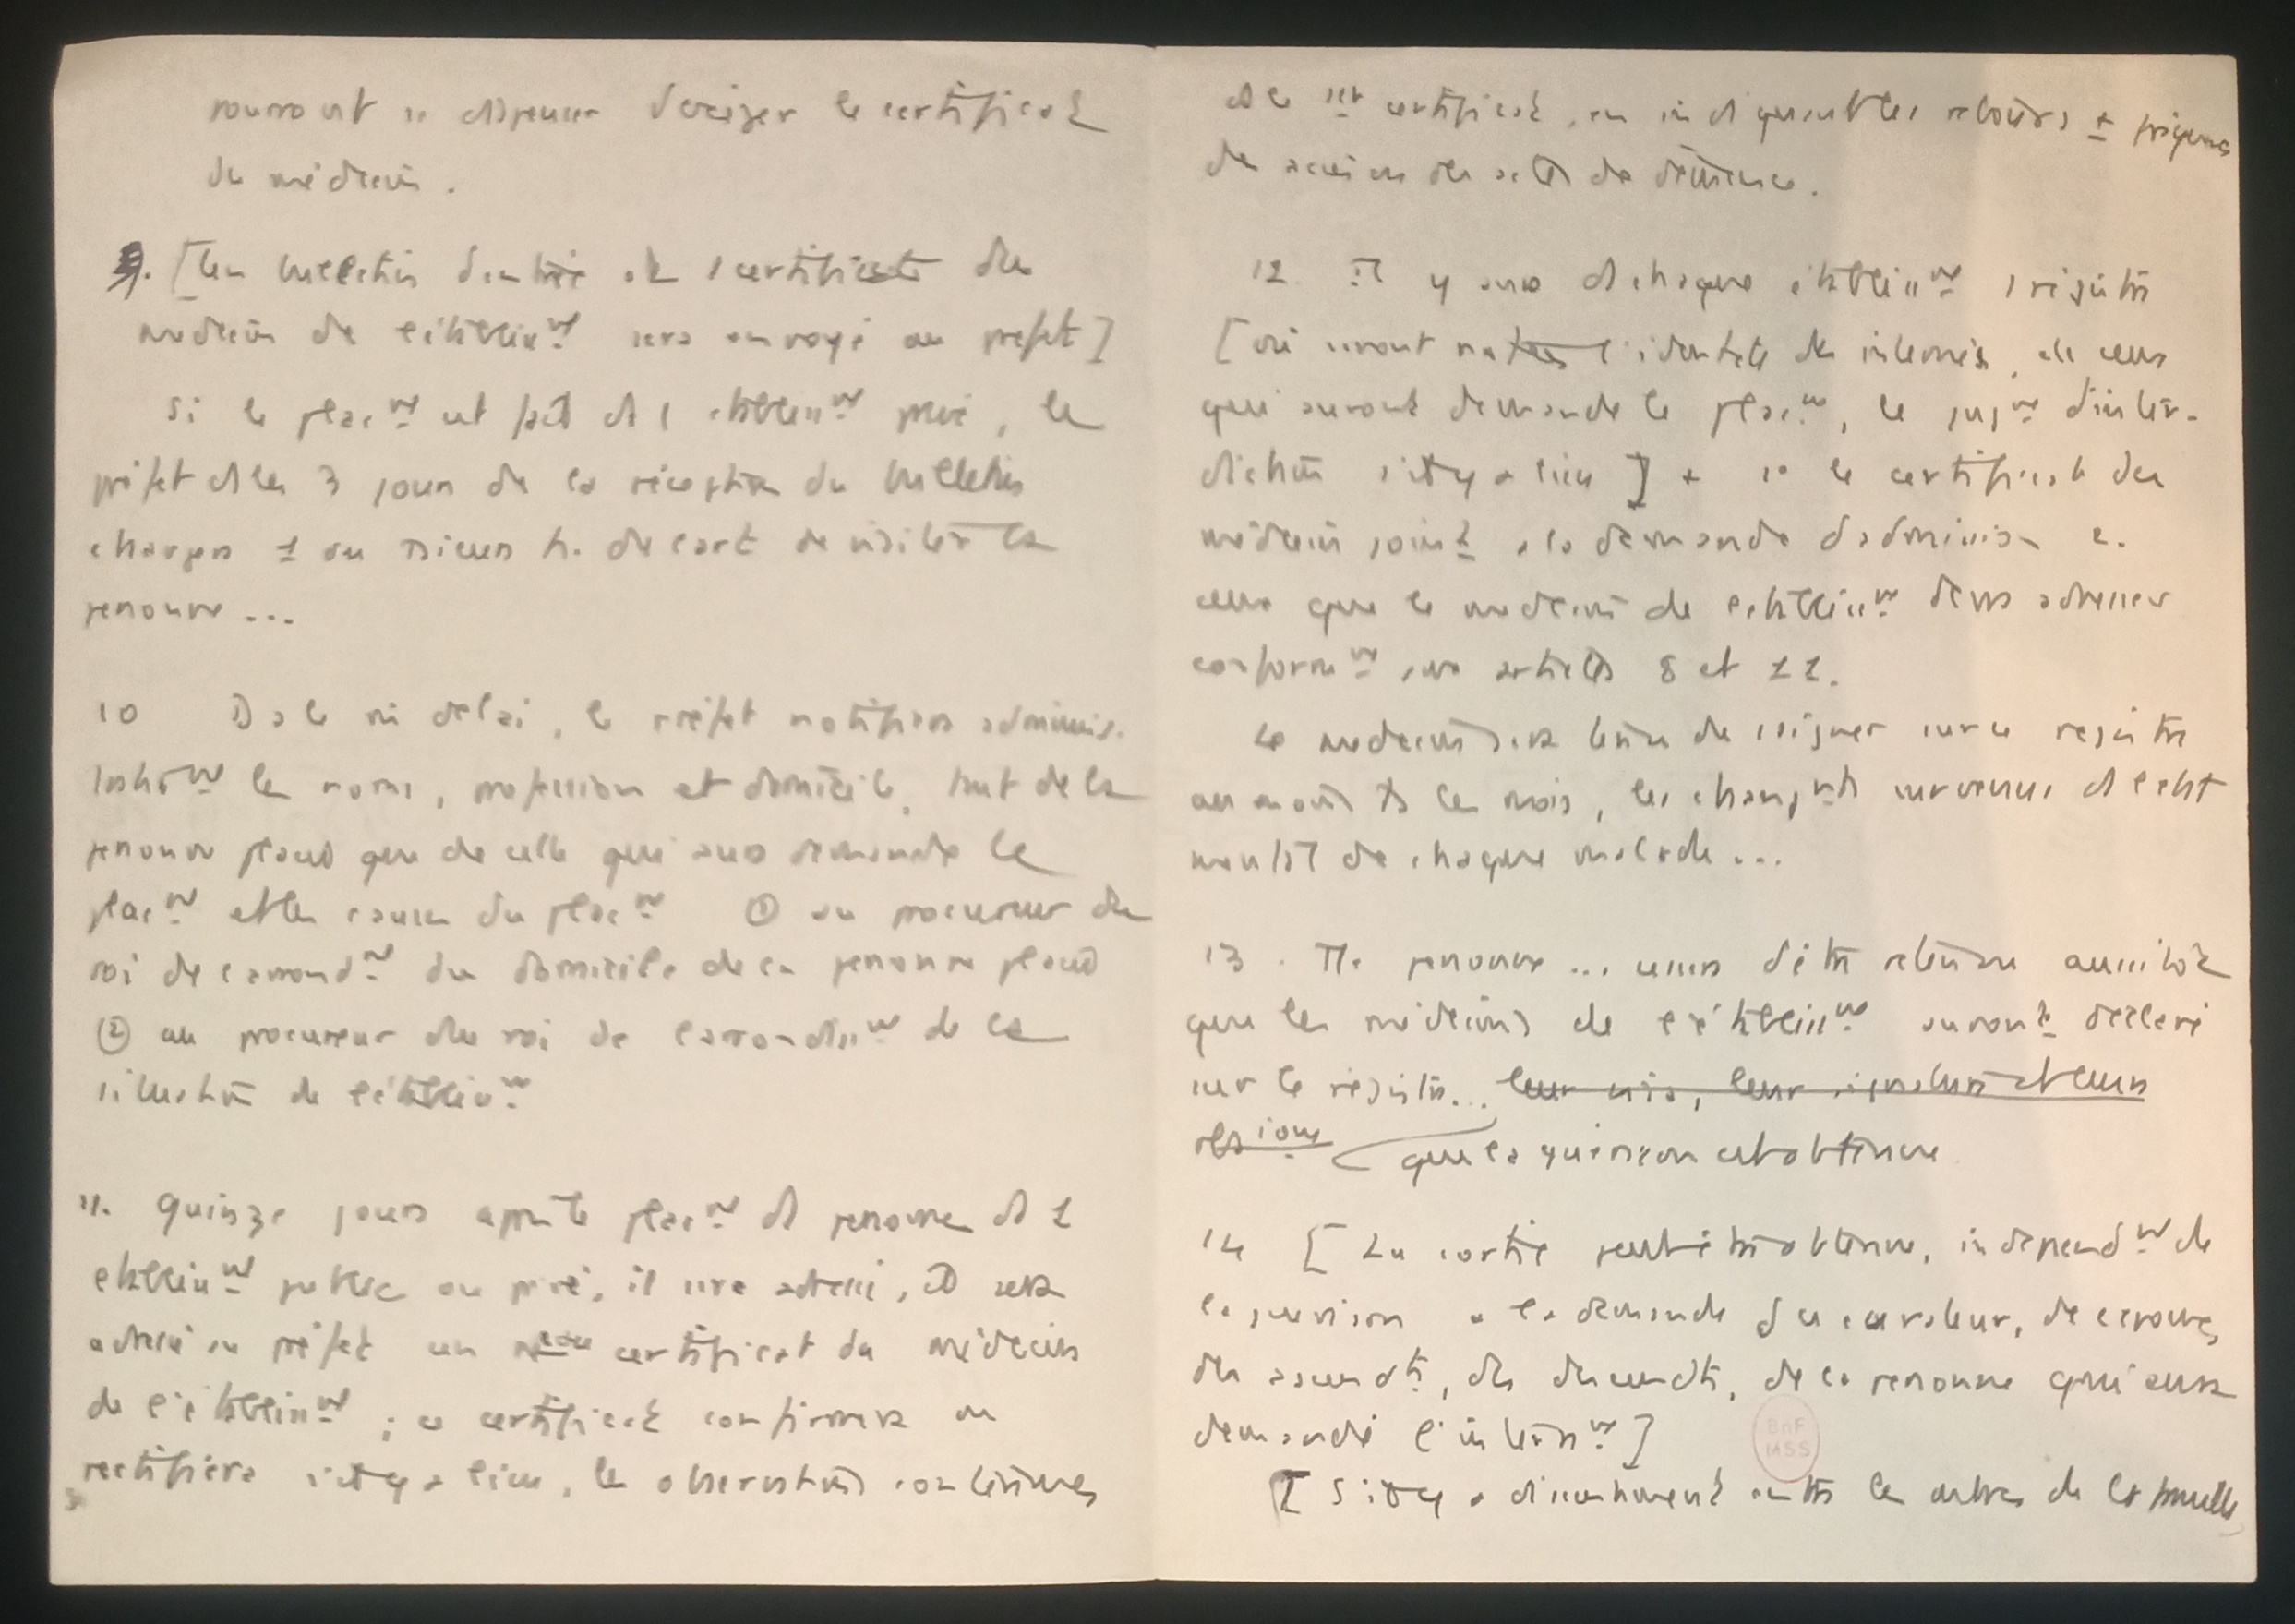 pourront se dispenser d'exiger le certificat
du médecin.
9. [Un bulletin d'entrée et 1 certificat du
médecin de l'établissnt sera envoyé au préfet]
Si le placnt est fait ds 1 établissnt privé, le
préfet ds les 3 jours de la réception du bulletin
chargera 1 ou psieurs h. de l'art de visiter la
personne...
10 Ds le m̂ délai, le préfet notifiera adminis-
trativnt les noms, profession et domicile, tant de la
personne placée que de celle qui aura demandé le
placnt et les causes du placnt ① au procureur du
roi de l'arrondnt du domicile de la personne placée
② au procureur du roi de l'arrondissnt de la
situation de l'établissnt
11. Quinze jours après le placnt d'1 personne ds 1
établissnt public ou privé, il sera adressé, il sera
adressé au préfet un nveau certificat du médecin
de l'établissnt ; ce certificat confirmera ou
rectifiera s'il y a lieu, les observations contenues
ds le 1er certificat, en indiquant les retours ± fréquents
des accès ou des actes de démence.
12. Il y aura ds chaque établissnt 1 registre
[où seront notées l'identité des internés, de ceux
qui auront demandé le placnt, le jugnt d'inter-
diction s'il y a lieu] + 1° le certificat du
médecin joint à la demande d'admission 2.
ceux que le médecin de l'établissnt devra adresser
conformnt aux articles 8 et 11.
Le médecin sera tenu de consigner sur ce registre
au moins ts les mois, les changnts survenus ds l'état
mental de chaque malade...
13. Tte personne... cessera d'être retenue aussitôt
que les médecins de l'établissnt auront déclaré
sur le registre... leur avis, leur signature et leurs
obsions que la guérison est obtenue
14 [La sortie peut être obtenue, indépendnt de
la guérison à la demande du curateur, de l'épouse,
des ascendts, des descendts, de la personne qui aura
demandé l'internnt]
[S'il y a dissentiment entre les autres de la famille,
BnF
MSS